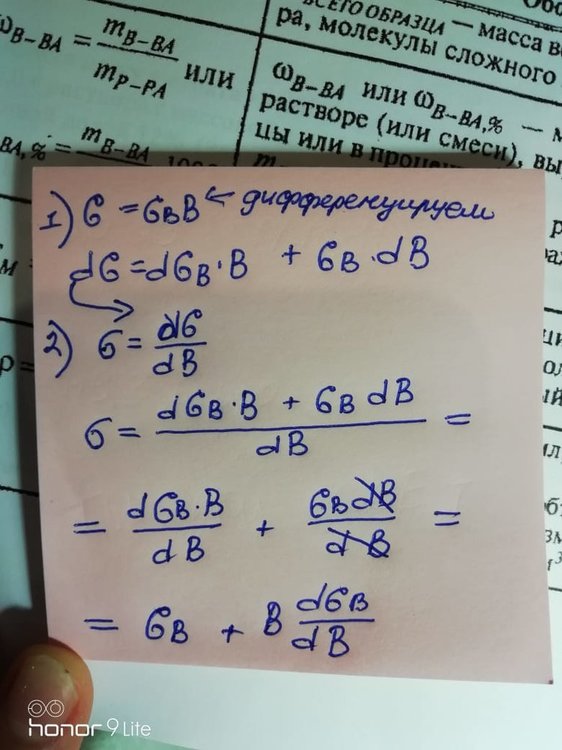 ω_B–BA = m_B–BA / m_P–PA или
ВСЕГО ОБРАЗЦА — масса
ра, молекулы сложного
ω_B–BA или ω_B–BA,% —
растворе (или смеси), вы
цы или в
BA,% = m_B–BA
1) б = б_B B ← дифференцируем
dб = dб_B · B + б_B · dB
2) б = dб / dB
б = (dб_B · B + б_B dB) / dB =
= dб_B · B / dB + б_B dB / dB =
= б_B + B dб_B / dB
honor 9 Lite